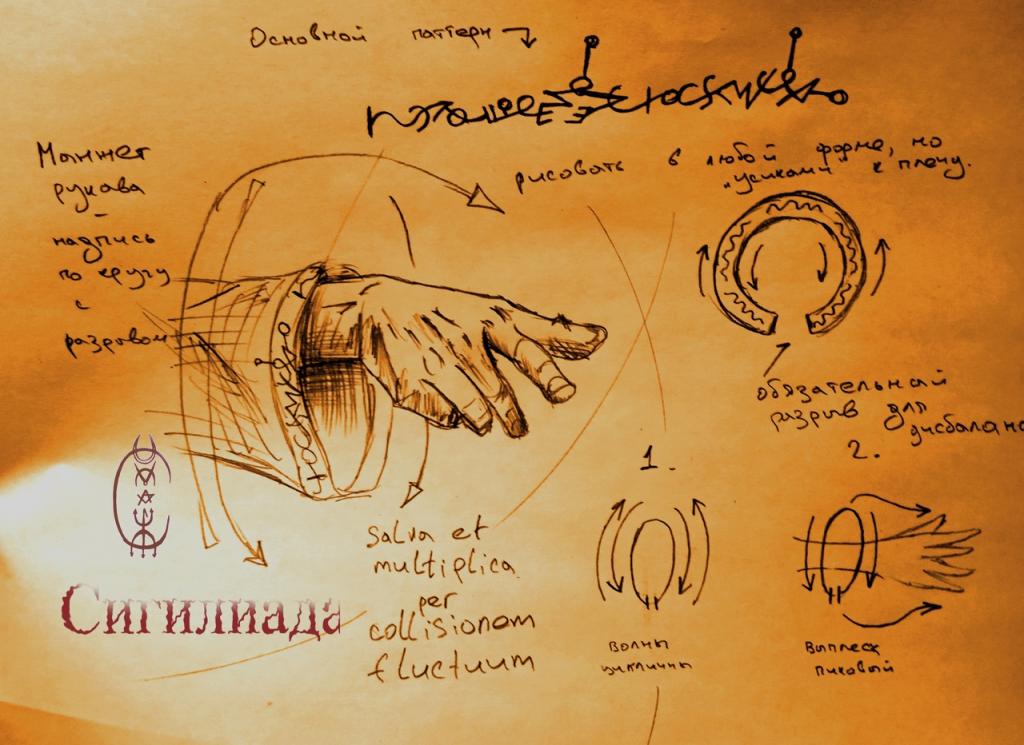 Основной паттерн
рисовать в любой форме, но
"усиками" к плечу.
Манжет
рукава
-
надпись
по кругу
с
разрывом
обязательный
разрыв для
дисбаланс
1.
2.
Salva et
multiplica
per
collisionem
fluctuum
волны
цикличны
выплеск
пиковый
Сигилиада